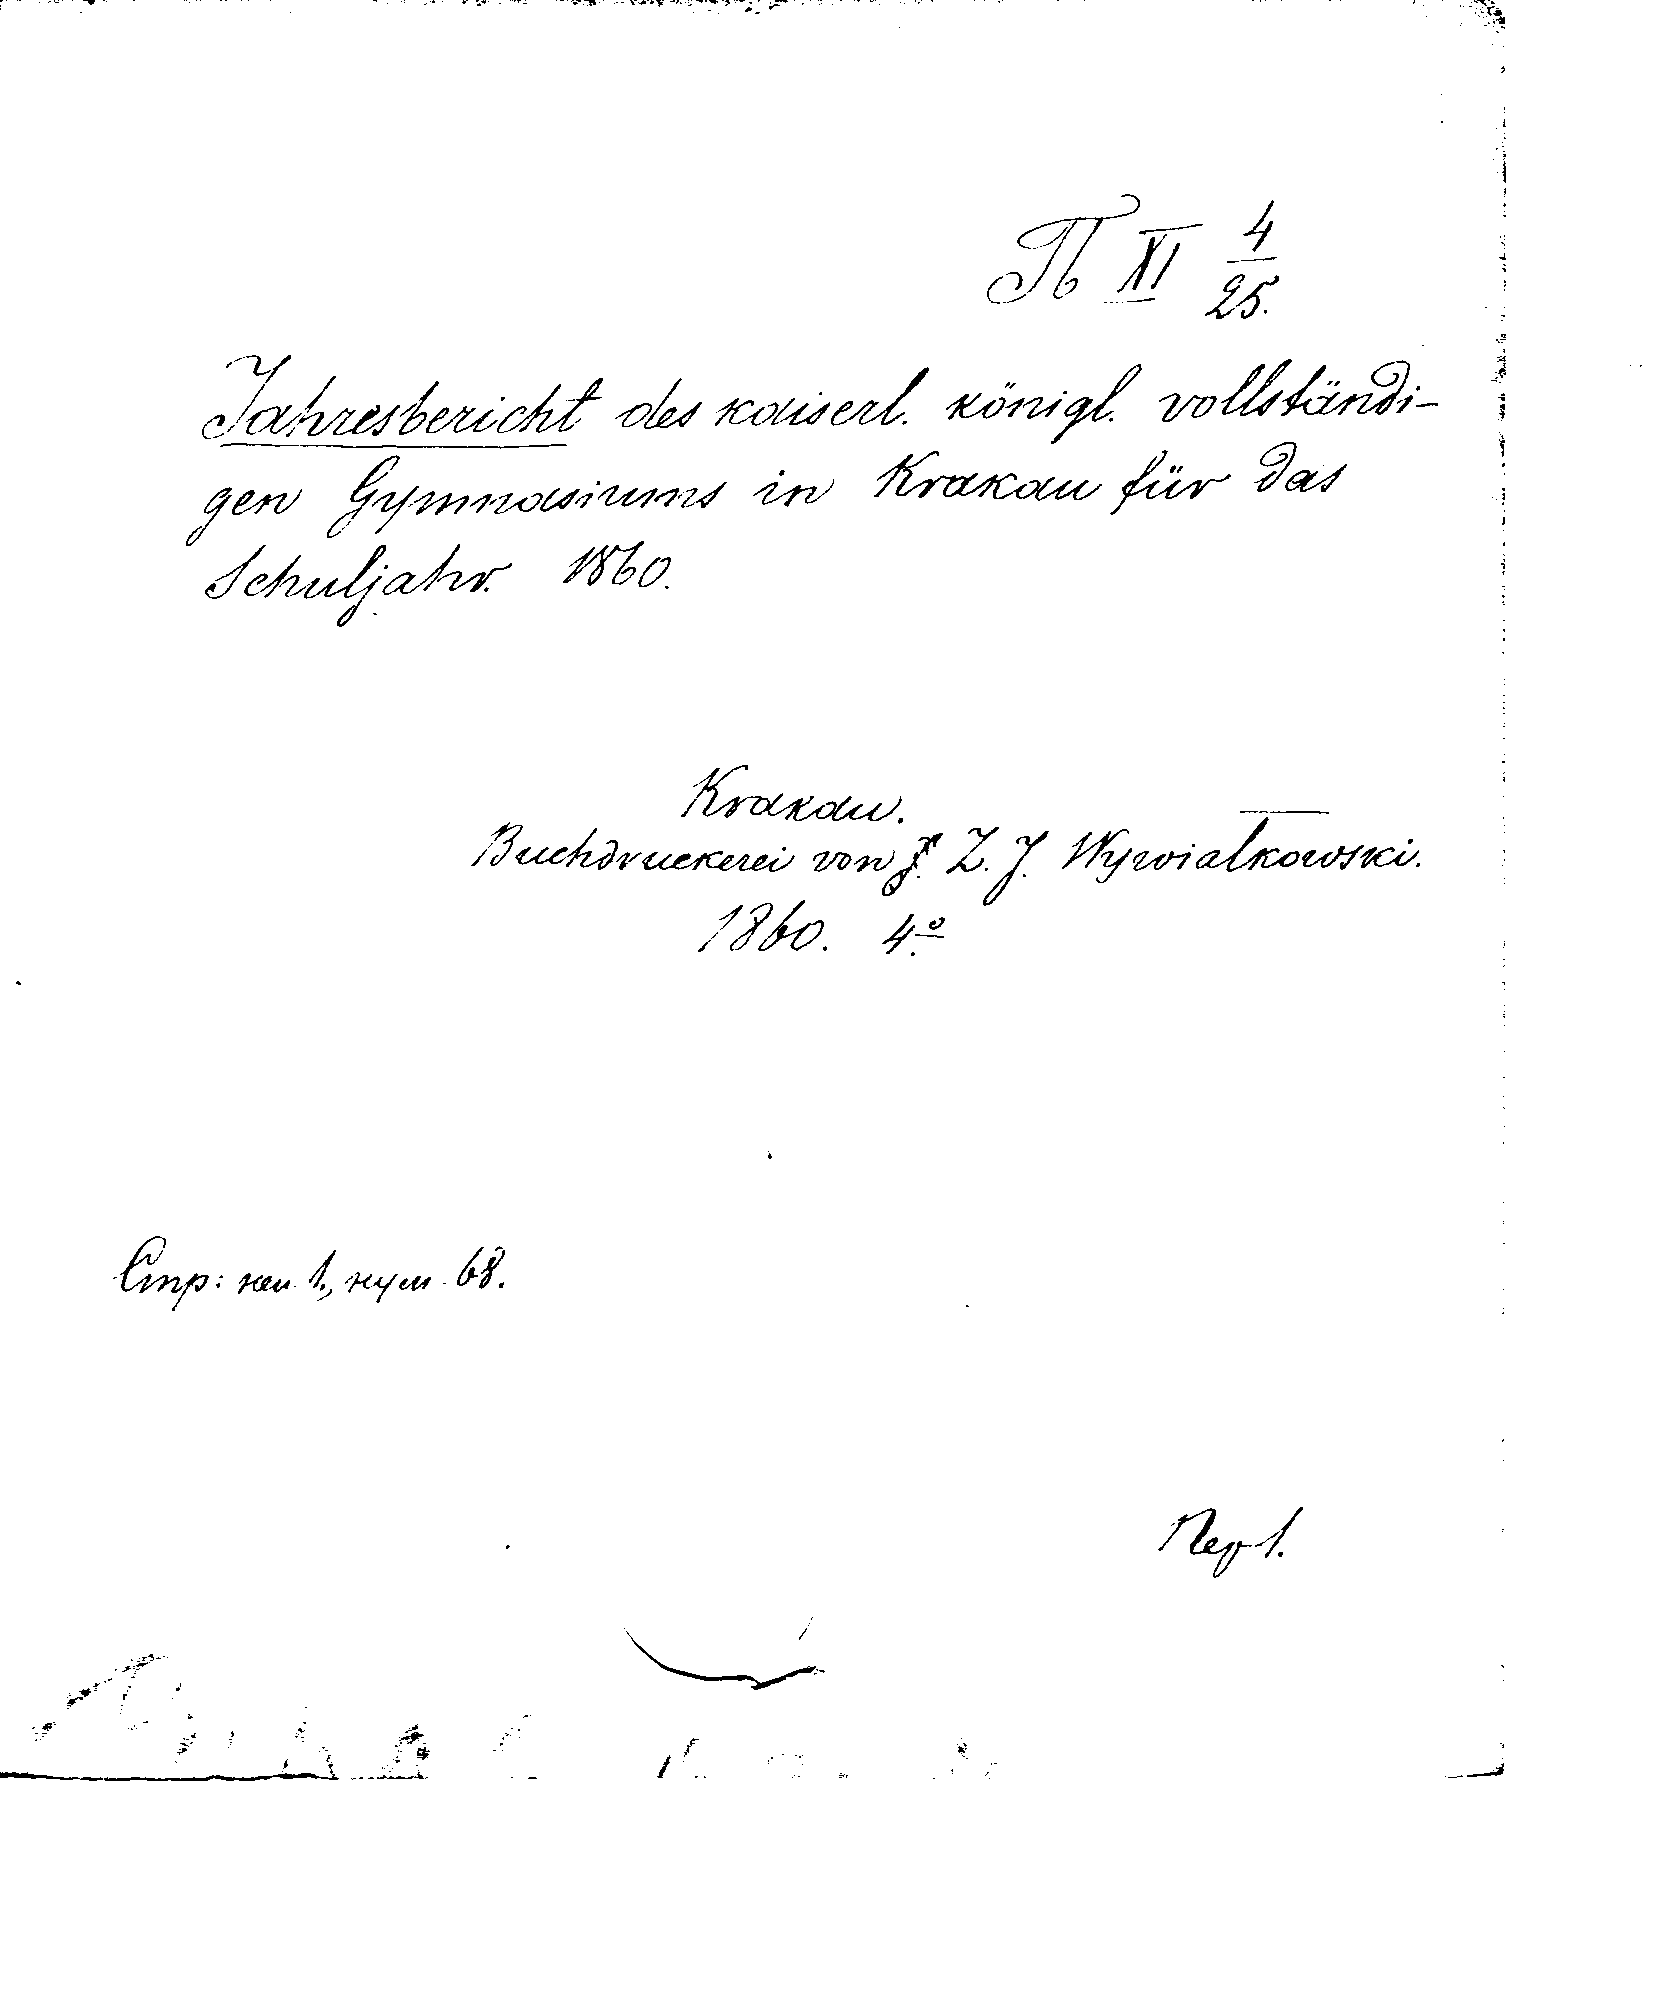 П XI 4/25.
Jahresbericht des kaiserl. königl. vollständi-
gen Gymnasiums in Krakau für das
Schuljahr. 1860.
Krakau.
Buchdruckerei von Z. J. Wywialkowski.
1860. 4º.
Стр: нен 1., нум. 68.
Пер 1.